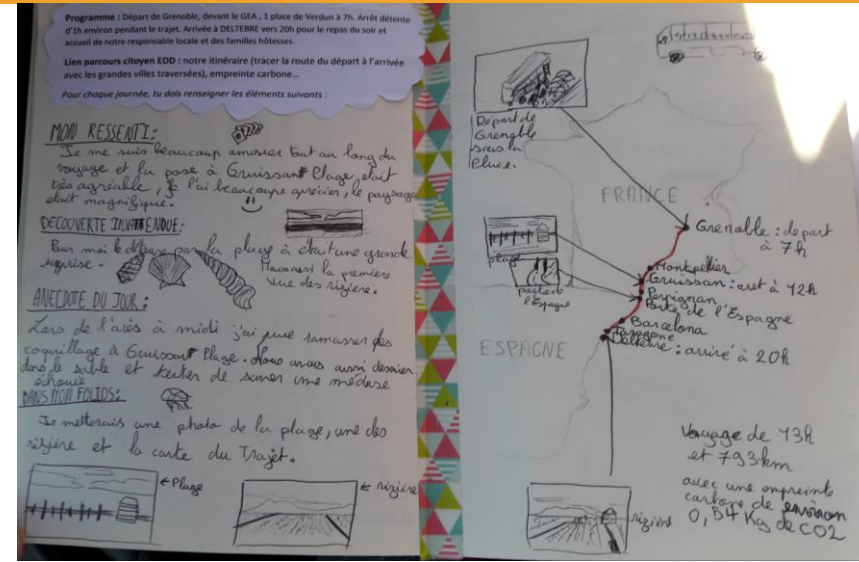 Programme : Départ de Grenoble, devant le GEA , 1 place de Verdun à 7h. Arrêt détente
d'1h environ pendant le trajet. Arrivée à DELTEBRE vers 20h pour le repas du soir et
accueil de notre responsable locale et des familles hôtesses.
Lien parcours citoyen EDD : notre itinéraire (tracer la route du départ à l'arrivée
avec les grandes villes traversées), empreinte carbone...
Pour chaque journée, tu dois renseigner les éléments suivants :
MON RESSENTI:
Je me suis beaucoup amusier tout au long du
voyage et la pose à Gruissant Plage, était
très agréable, je l'ai beaucoupe aprécier, le paysage
était magnifique.
DECOUVERTE INATTENDUE:
Pour moi le par la plage à était une grande
suprise.
la première
vue des rizière.
ANECDOTE DU JOUR:
Lors de l'arès à midi j'ai pue ramasser des
coquillage à Gruissant Plage. Nous avons aussi dessiner
dans le sable et tenter de sauver une méduse
échouée
DANS MON FOLIOS:
Je metterais une photo de la plage, une des
rizière et la carte du Trajet.
← Plage
← rizière
Départ de
Grenoble
sous la
pluie.
FRANCE
Grenoble : depart
à 7h
plage
Montpellier
Gruissan : aret à 12h
Perpignan
Porte de l'Espagne
porte de
l'Espagne
Barcelona
Taragone
Deltebre : arrivé à 20h
ESPAGNE
Voyage de 13h
et 793km
avec une empreinte
carbone de environ
0,54 Kg de CO2
rizière